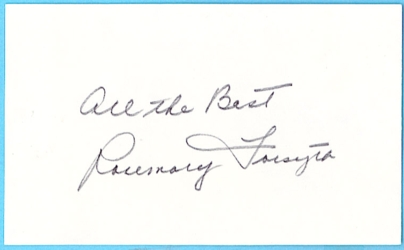 All the Best
Rosemary Forsyth